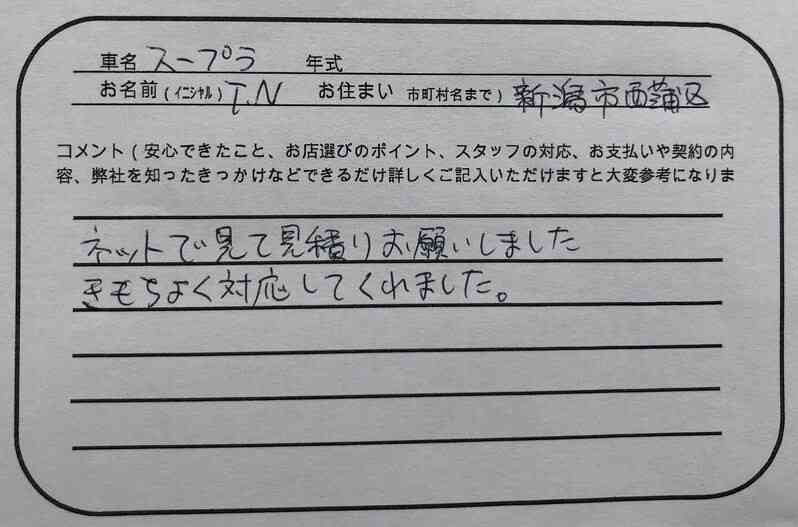 車名 スープラ 年式
お名前(イニシャル) T.N お住まい 市町村名まで) 新潟市西蒲区
コメント(安心できたこと、お店選びのポイント、スタッフの対応、お支払いや契約の内
容、弊社を知ったきっかけなどできるだけ詳しくご記入いただけますと大変参考になりま
ネットで見て見積りお願いしました
きもちよく対応してくれました。